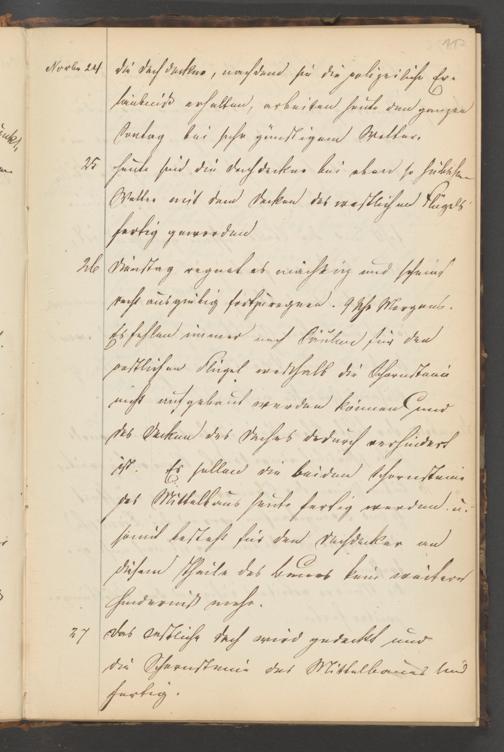 112
Novbr 24 die Dachdecker, nachdem sie die polizeiliche Er-
laubniß erhalten, arbeiten heute den ganzen
Sontag bei sehr günstigem Wetter.
25 heute sind die Dachdecker bei eben so hübschem
Wetter mit dem Decken des westlichen Flügels
fertig geworden
26 Dienstag regnet es mächtig und scheint
recht ausgiebig fortzuregnen. 9 Uhr Morgens.
Es fehlen immer noch Säulen für den
östlichen Flügel weßhalb die Schornsteine
nicht aufgebaut werden können und
das Decken des Daches dadurch verhindert
ist. Es sollen die beiden Schornsteine
des Mittelbaus heute fertig werden u.
somit besteht für den Dachdecker an
diesem Theile des Baues kein weiteres
Hinderniß mehr.
27 Das östliche Dach wird gedeckt und
die Schornsteine des Mittelbaues sind
fertig.